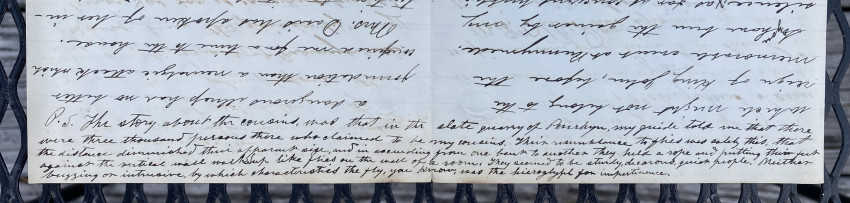 P.S. The story about the cousins, was that in the slate quarry of Penrhyn, my guide told me that there
were three thousand persons there who claimed to be my cousins. Their resemblance to flies was solely this, that
the distance diminished their apparent size, and in ascending from one point to another they held a rope and putting their feet
against the vertical wall walked up like flies on the wall of a room. They seemed to be sturdy, decorous quiet people. Neither
buzzing or intrusive, by which characteristics the fly, you know, was the hieroglyph for impertinence.
which might not belong to the
reign of King John, before the
memorable event at Runnymede.
from the gainer by any
silence
a dangerous has no better
foundation than a neuralgic attack which
confined me for a time to the house.
Mrs. David has spoken of her in-